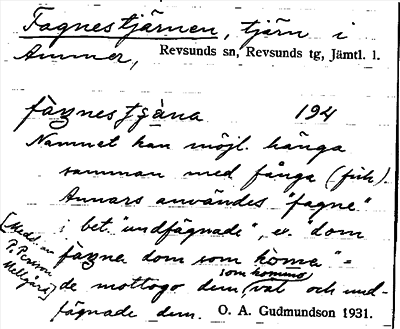 Fagnestjärnen, tjärn i
Ammer, Revsunds sn, Revsunds tg, Jämtl. l.
fàgnestgàna 194
Namnet kan möjl. hänga
samman med fånga (fisk).
Annars användes "fagne"
i bet. "undfägnade", ex. dom
fàgna dom som koma" =
de mottogo dem, som kommo, väl och und-
fägnade dem. O. A. Gudmundson 1931.
(Medd. av
P. Persson
Mellgård)